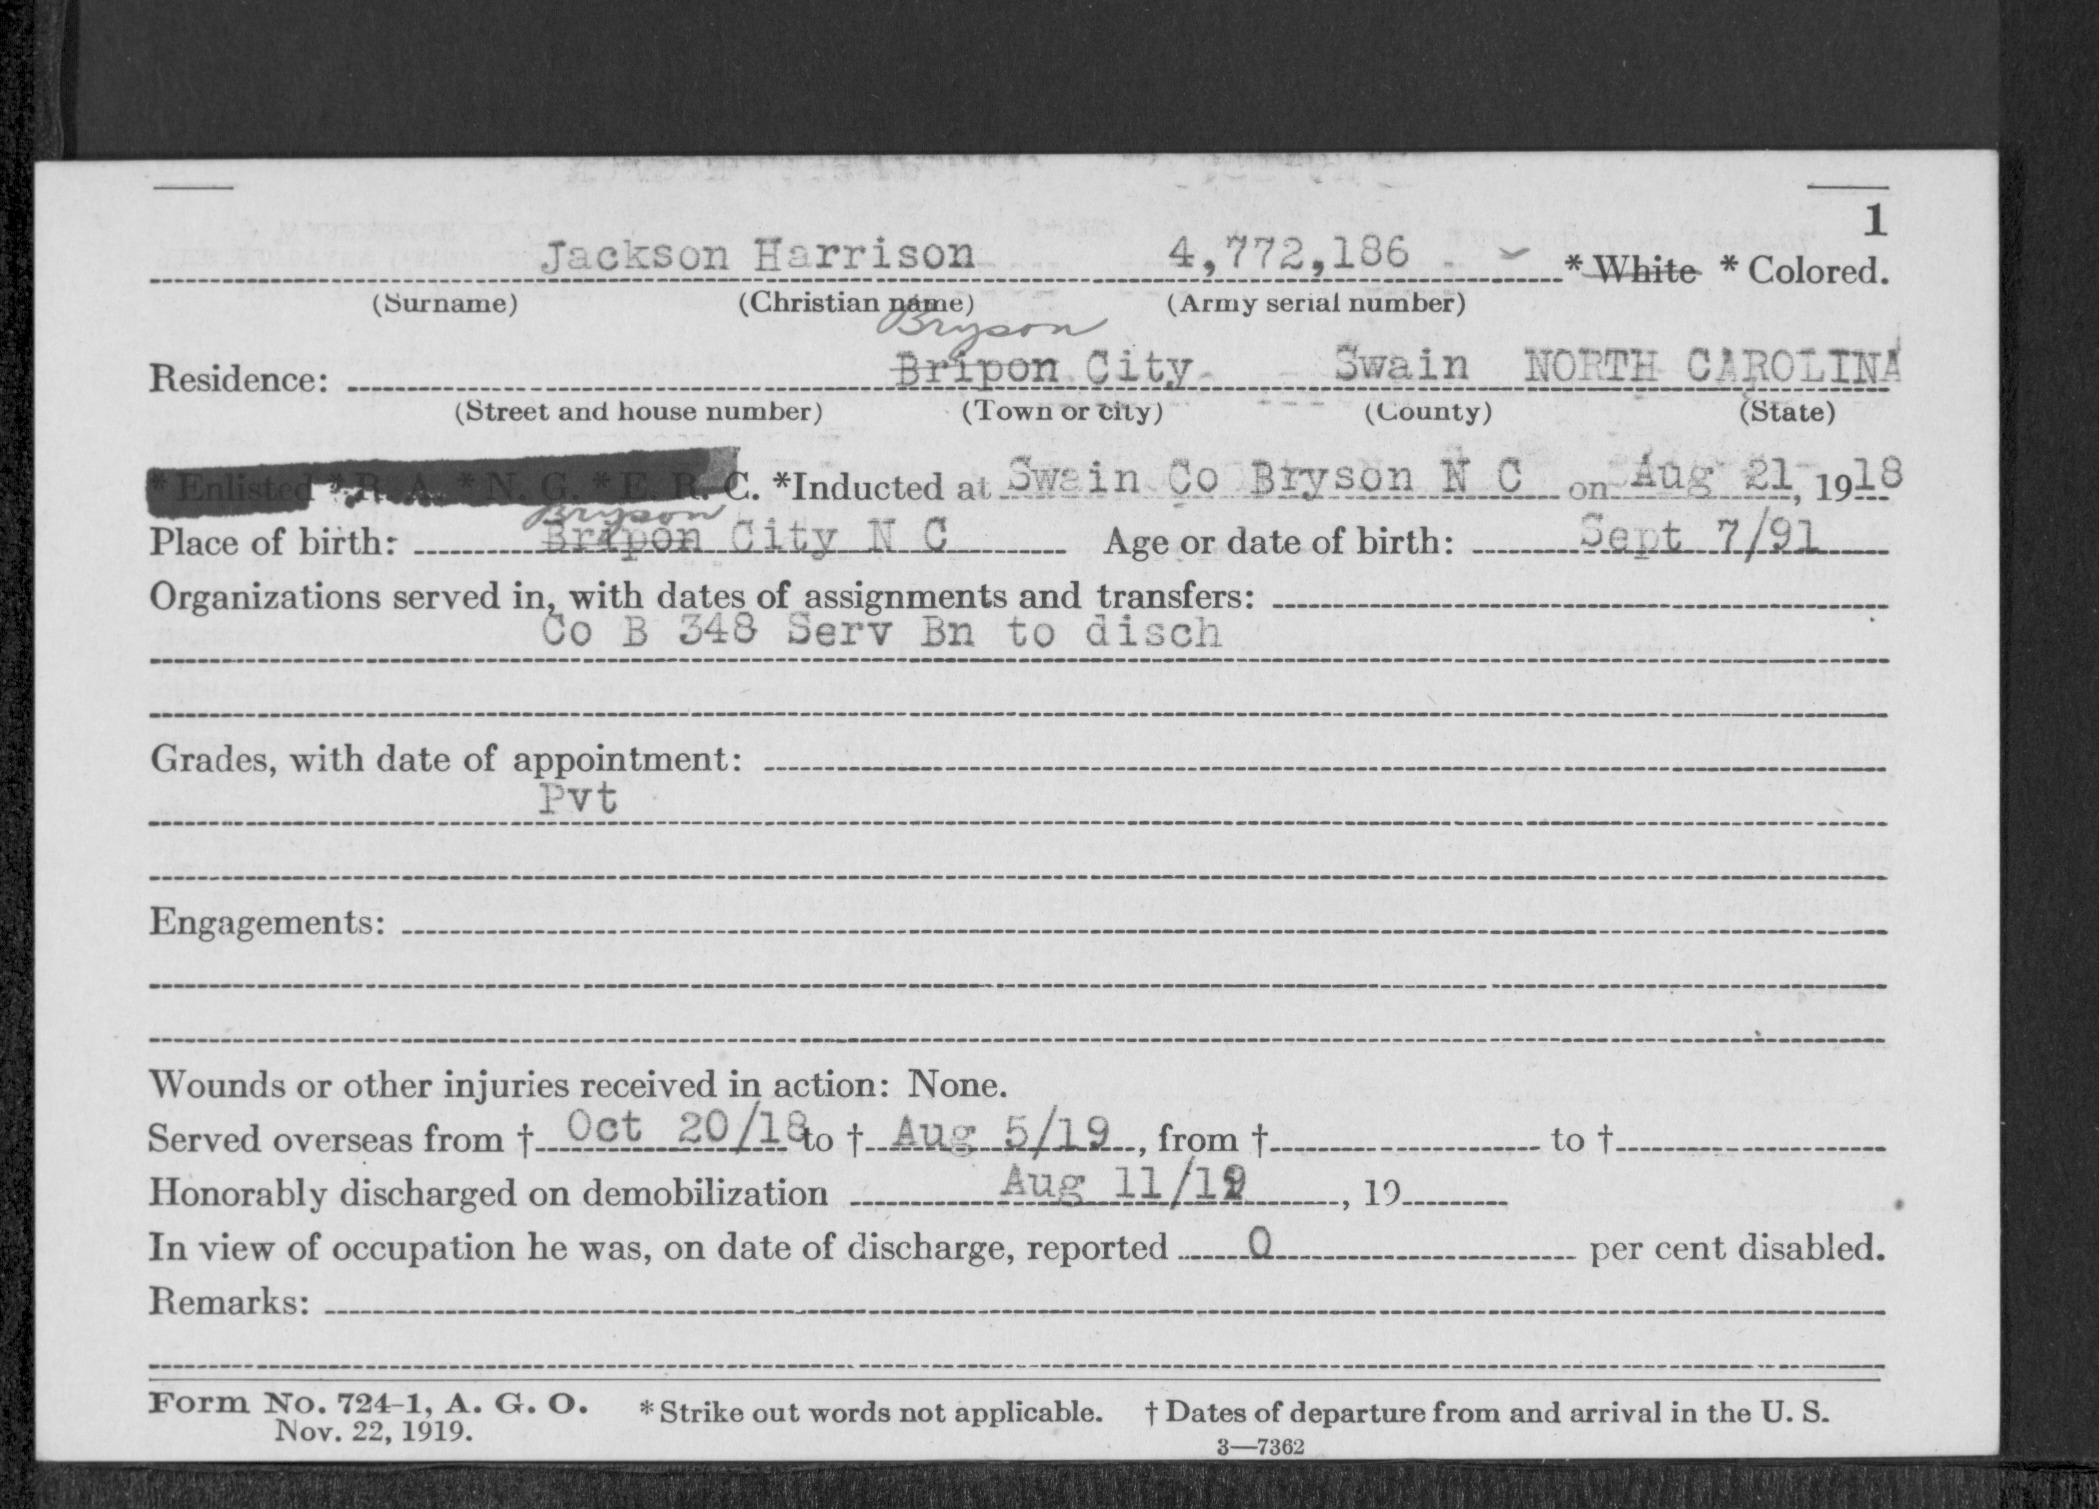 1
Jackson Harrison 4,772,186 * White * Colored.
(Surname) (Christian name) (Army serial number)
Bryson
Residence: Bripon City Swain NORTH CAROLINA
(Street and house number) (Town or city) (County) (State)
* Enlisted * R. A. * N. G. * E. R. C. *Inducted at Swain Co Bryson N C on Aug 21, 1918
Bryson
Place of birth: Bripon City N C Age or date of birth: Sept 7/91
Organizations served in, with dates of assignments and transfers:
Co B 348 Serv Bn to disch
Grades, with date of appointment:
Pvt
Engagements:
Wounds or other injuries received in action: None.
Served overseas from † Oct 20/18 to † Aug 5/19, from † to †
Honorably discharged on demobilization Aug 11/19, 19
In view of occupation he was, on date of discharge, reported 0 per cent disabled.
Remarks:
Form No. 724-1, A. G. O. * Strike out words not applicable. † Dates of departure from and arrival in the U. S.
Nov. 22, 1919.
3—7362